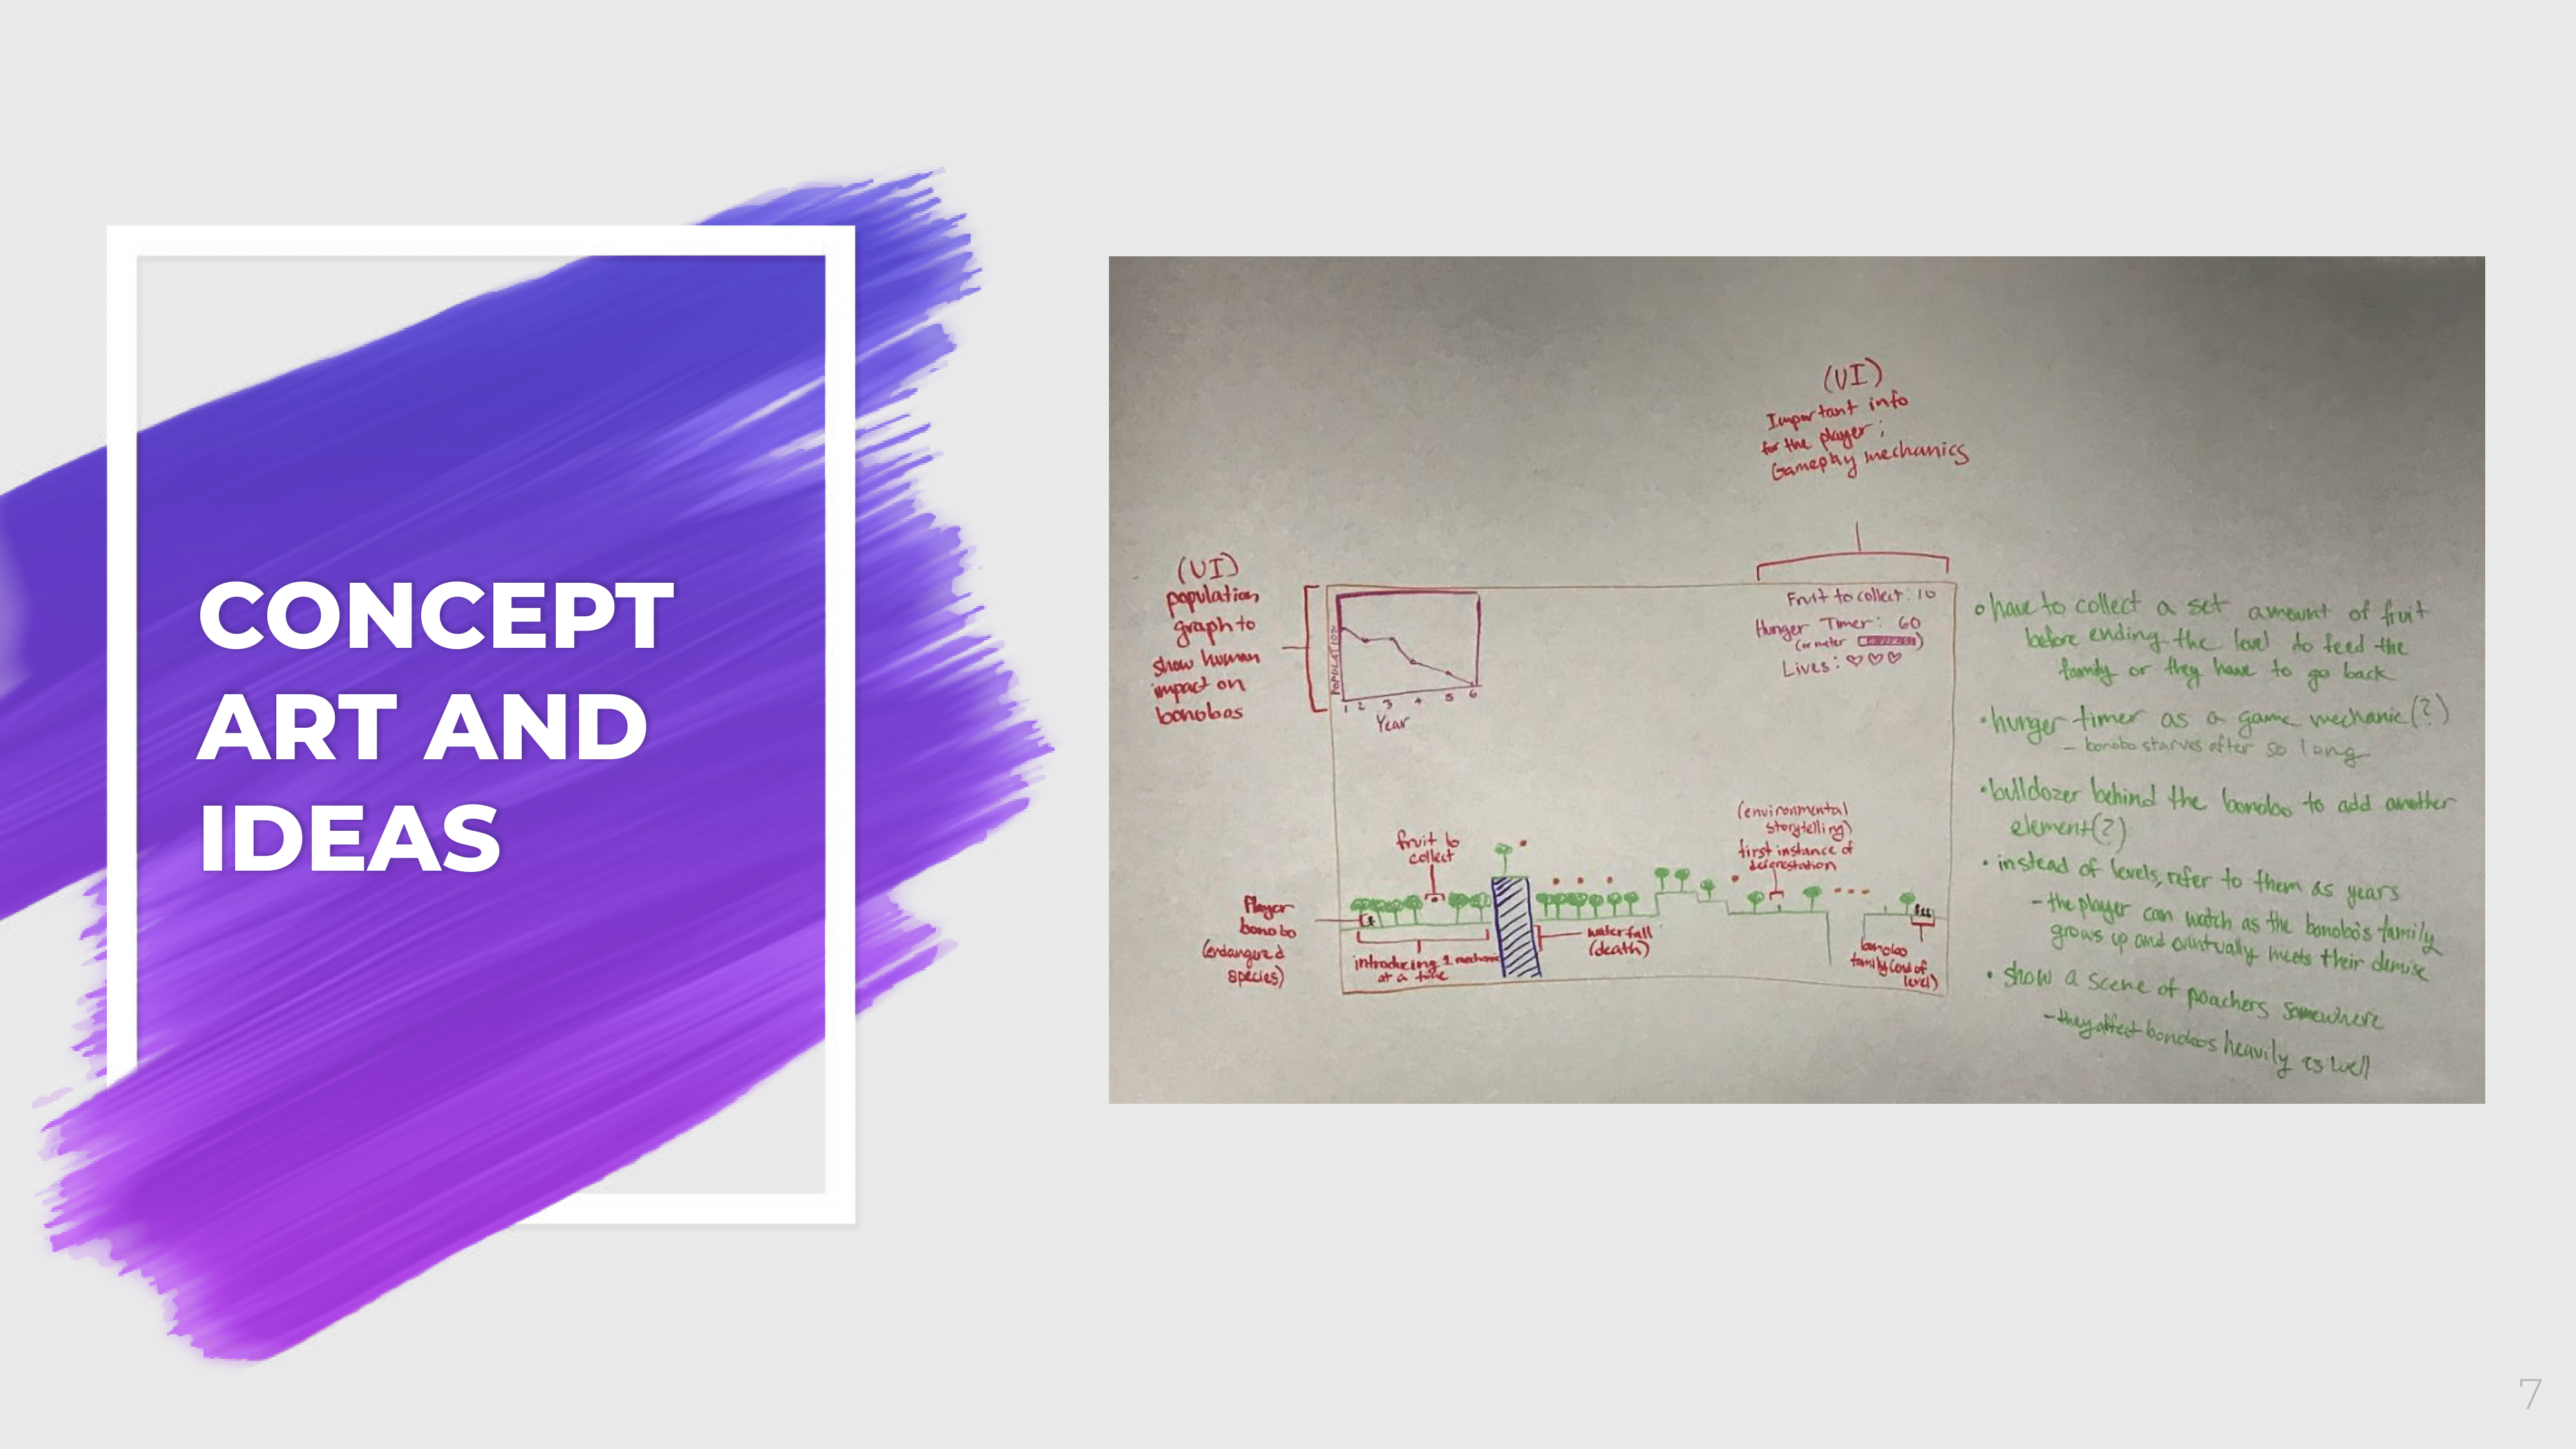 CONCEPT
ART AND
IDEAS
(UI)
Important info
for the player;
Gameplay mechanics
(UI)
population
graph to
show human
impact on
bonobos
POPULATION
1 2 3 4 5 6
Year
Fruit to collect: 10
Hunger Timer: 60
(or meter )
Lives: ♡♡♡
fruit to
collect
(environmental
storytelling)
first instance of
deforestation
Player
bonobo
(endangered
species)
introducing 1 mechanic
at a time
waterfall
(death)
bonobo
family (end of
level)
◦ have to collect a set amount of fruit
before ending the level to feed the
family or they have to go back
• hunger timer as a game mechanic(?)
- bonobo starves after so long
• bulldozer behind the bonobo to add another
element(?)
• instead of levels, refer to them as years
- the player can watch as the bonobo's family
grows up and eventually meets their demise
• show a scene of poachers somewhere
- they affect bonobos heavily as well
7